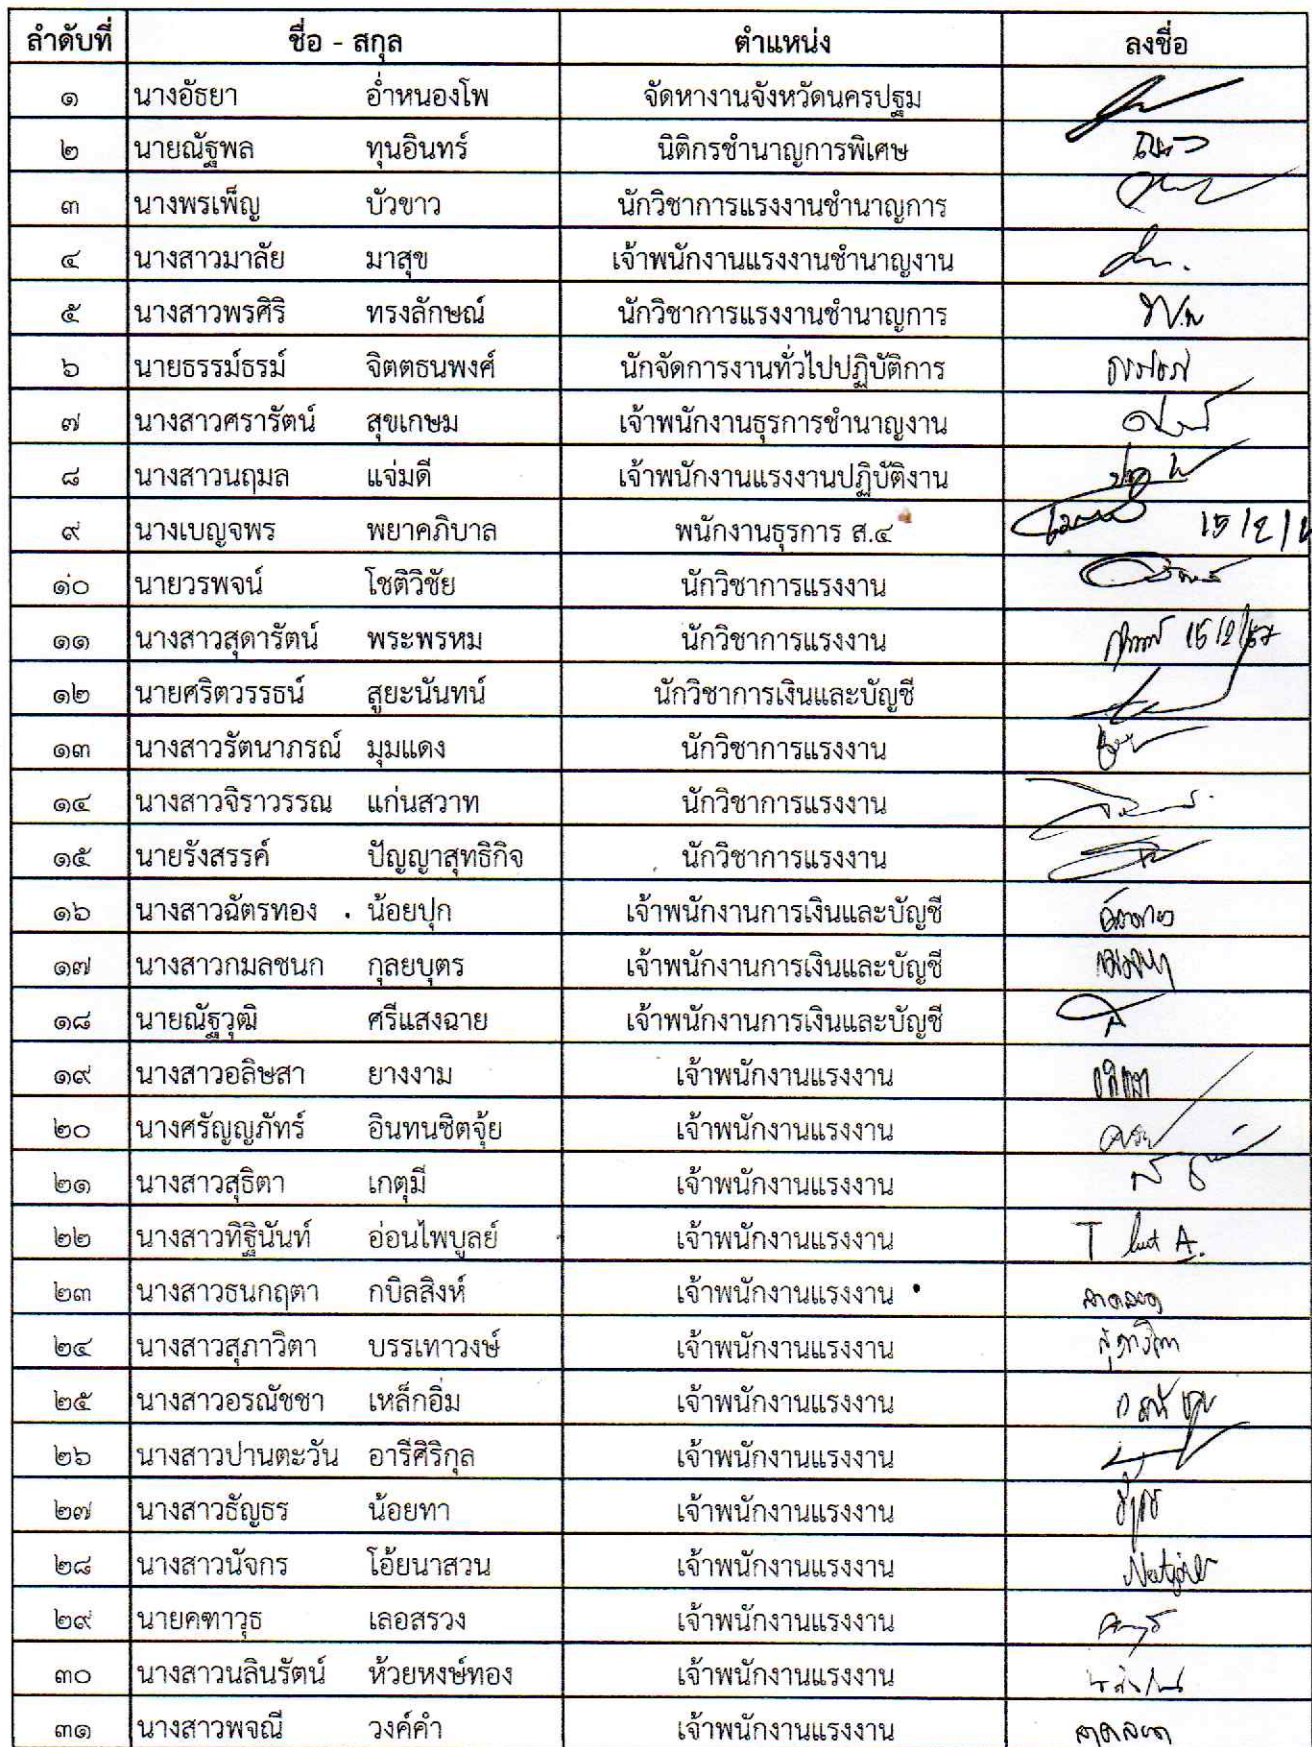 ลำดับที่ ชื่อ - สกุล ตำแหน่ง ลงชื่อ
๑ นางอัธยา อ่ำหนองโพ จัดหางานจังหวัดนครปฐม
๒ นายณัฐพล ทุนอินทร์ นิติกรชำนาญการพิเศษ
๓ นางพรเพ็ญ บัวขาว นักวิชาการแรงงานชำนาญการ
๔ นางสาวมาลัย มาสุข เจ้าพนักงานแรงงานชำนาญงาน
๕ นางสาวพรศิริ ทรงลักษณ์ นักวิชาการแรงงานชำนาญการ
๖ นายธรรม์ธรม์ จิตตธนพงศ์ นักจัดการงานทั่วไปปฏิบัติการ
๗ นางสาวศรารัตน์ สุขเกษม เจ้าพนักงานธุรการชำนาญงาน
๘ นางสาวนฤมล แจ่มดี เจ้าพนักงานแรงงานปฏิบัติงาน
๙ นางเบญจพร พยาคภิบาล พนักงานธุรการ ส.๔
๑๐ นายวรพจน์ โชติวิชัย นักวิชาการแรงงาน
๑๑ นางสาวสุดารัตน์ พระพรหม นักวิชาการแรงงาน 15/2/67
๑๒ นายศริตวรรธน์ สูยะนันทน์ นักวิชาการเงินและบัญชี
๑๓ นางสาวรัตนาภรณ์ มุมแดง นักวิชาการแรงงาน
๑๔ นางสาวจิราวรรณ แก่นสวาท นักวิชาการแรงงาน
๑๕ นายรังสรรค์ ปัญญาสุทธิกิจ นักวิชาการแรงงาน
๑๖ นางสาวฉัตรทอง น้อยปุก เจ้าพนักงานการเงินและบัญชี
๑๗ นางสาวกมลชนก กุลยบุตร เจ้าพนักงานการเงินและบัญชี
๑๘ นายณัฐวุฒิ ศรีแสงฉาย เจ้าพนักงานการเงินและบัญชี
๑๙ นางสาวอลิษสา ยางงาม เจ้าพนักงานแรงงาน
๒๐ นางศรัญญภัทร์ อินทนชิตจุ้ย เจ้าพนักงานแรงงาน
๒๑ นางสาวสุธิตา เกตุมี เจ้าพนักงานแรงงาน
๒๒ นางสาวทิฐินันท์ อ่อนไพบูลย์ เจ้าพนักงานแรงงาน
๒๓ นางสาวธนกฤตา กบิลสิงห์ เจ้าพนักงานแรงงาน ลาคลอด
๒๔ นางสาวสุภาวิตา บรรเทาวงษ์ เจ้าพนักงานแรงงาน สุภาวิตา
๒๕ นางสาวอรณัชชา เหล็กอิ่ม เจ้าพนักงานแรงงาน
๒๖ นางสาวปานตะวัน อารีศิริกุล เจ้าพนักงานแรงงาน
๒๗ นางสาวธัญธร น้อยทา เจ้าพนักงานแรงงาน
๒๘ นางสาวนัจกร โอ้ยนาสวน เจ้าพนักงานแรงงาน
๒๙ นายคฑาวุธ เลอสรวง เจ้าพนักงานแรงงาน
๓๐ นางสาวนลินรัตน์ ห้วยหงษ์ทอง เจ้าพนักงานแรงงาน
๓๑ นางสาวพจณี วงค์คำ เจ้าพนักงานแรงงาน ลาคลอด